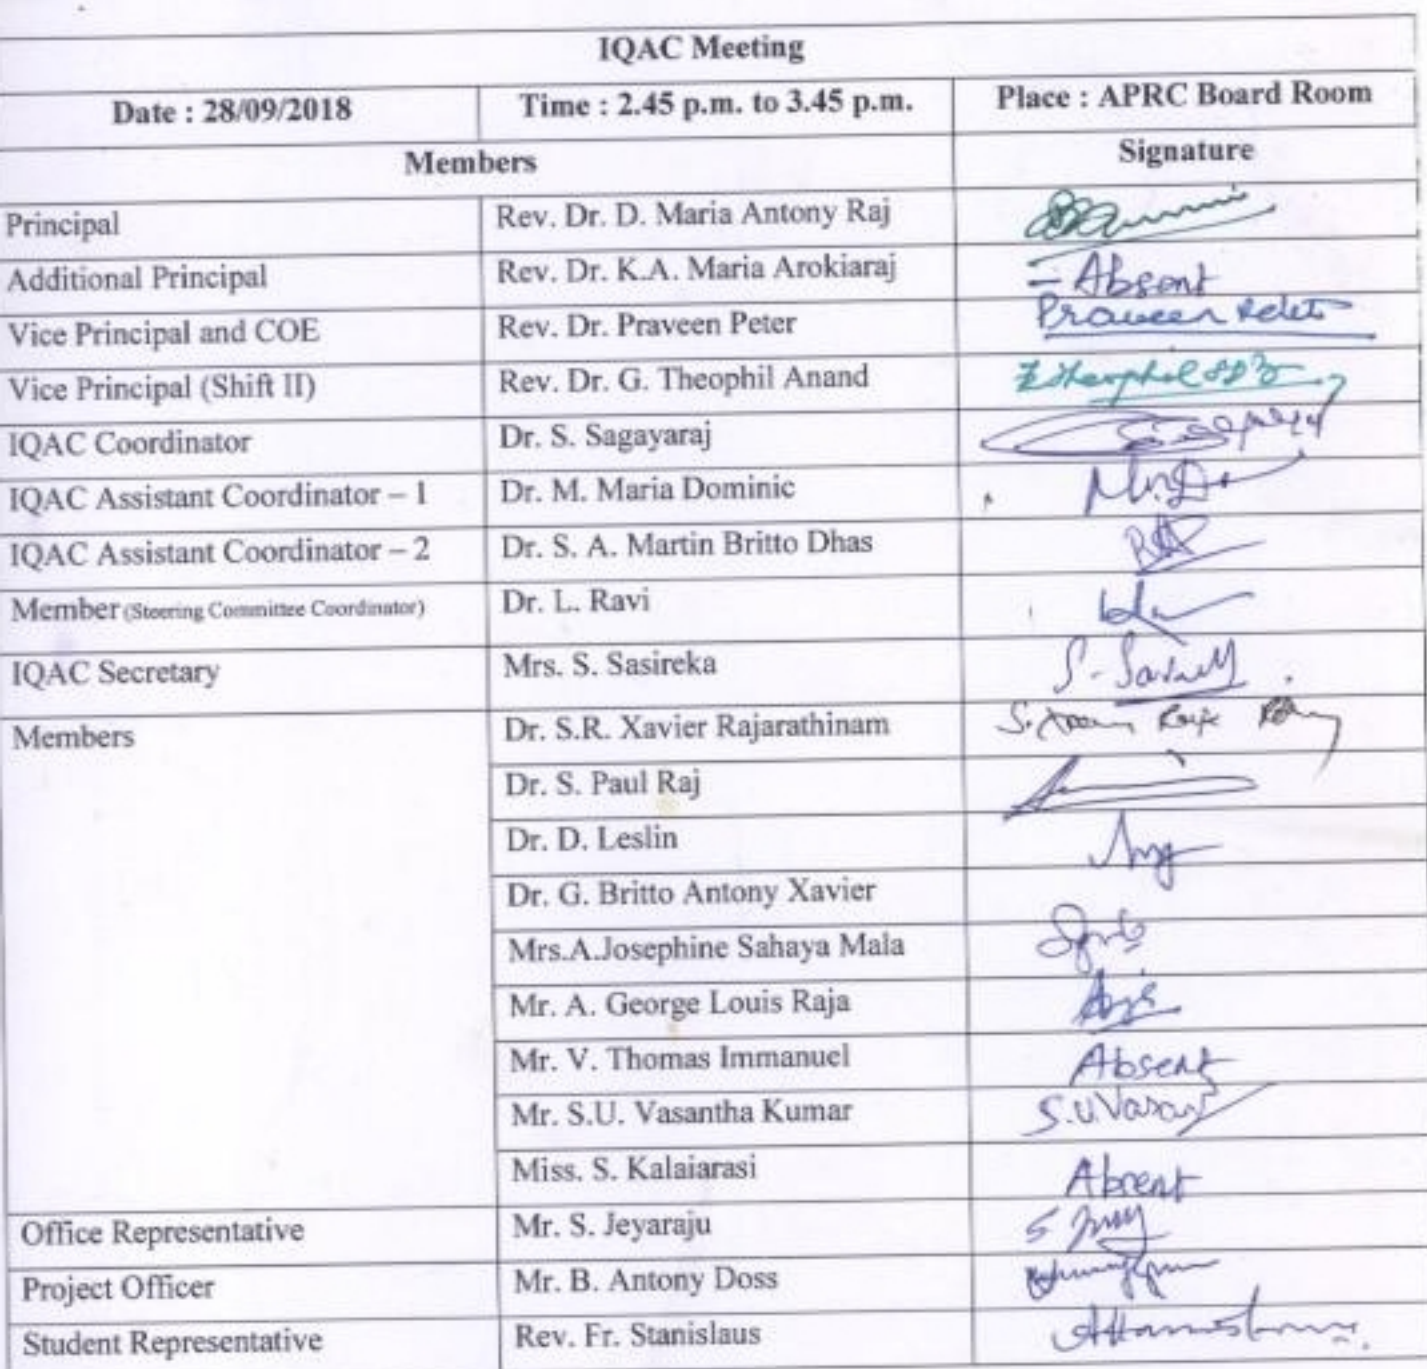 IQAC Meeting
Date : 28/09/2018 Time : 2.45 p.m. to 3.45 p.m. Place : APRC Board Room
Members Signature
Principal Rev. Dr. D. Maria Antony Raj
Additional Principal Rev. Dr. K.A. Maria Arokiaraj – Absent
Vice Principal and COE Rev. Dr. Praveen Peter Praveen Peter
Vice Principal (Shift II) Rev. Dr. G. Theophil Anand
IQAC Coordinator Dr. S. Sagayaraj
IQAC Assistant Coordinator – 1 Dr. M. Maria Dominic
IQAC Assistant Coordinator – 2 Dr. S. A. Martin Britto Dhas
Member (Steering Committee Coordinator) Dr. L. Ravi
IQAC Secretary Mrs. S. Sasireka
Members Dr. S.R. Xavier Rajarathinam
Dr. S. Paul Raj
Dr. D. Leslin
Dr. G. Britto Antony Xavier
Mrs.A.Josephine Sahaya Mala
Mr. A. George Louis Raja
Mr. V. Thomas Immanuel Absent
Mr. S.U. Vasantha Kumar
Miss. S. Kalaiarasi Absent
Office Representative Mr. S. Jeyaraju
Project Officer Mr. B. Antony Doss
Student Representative Rev. Fr. Stanislaus